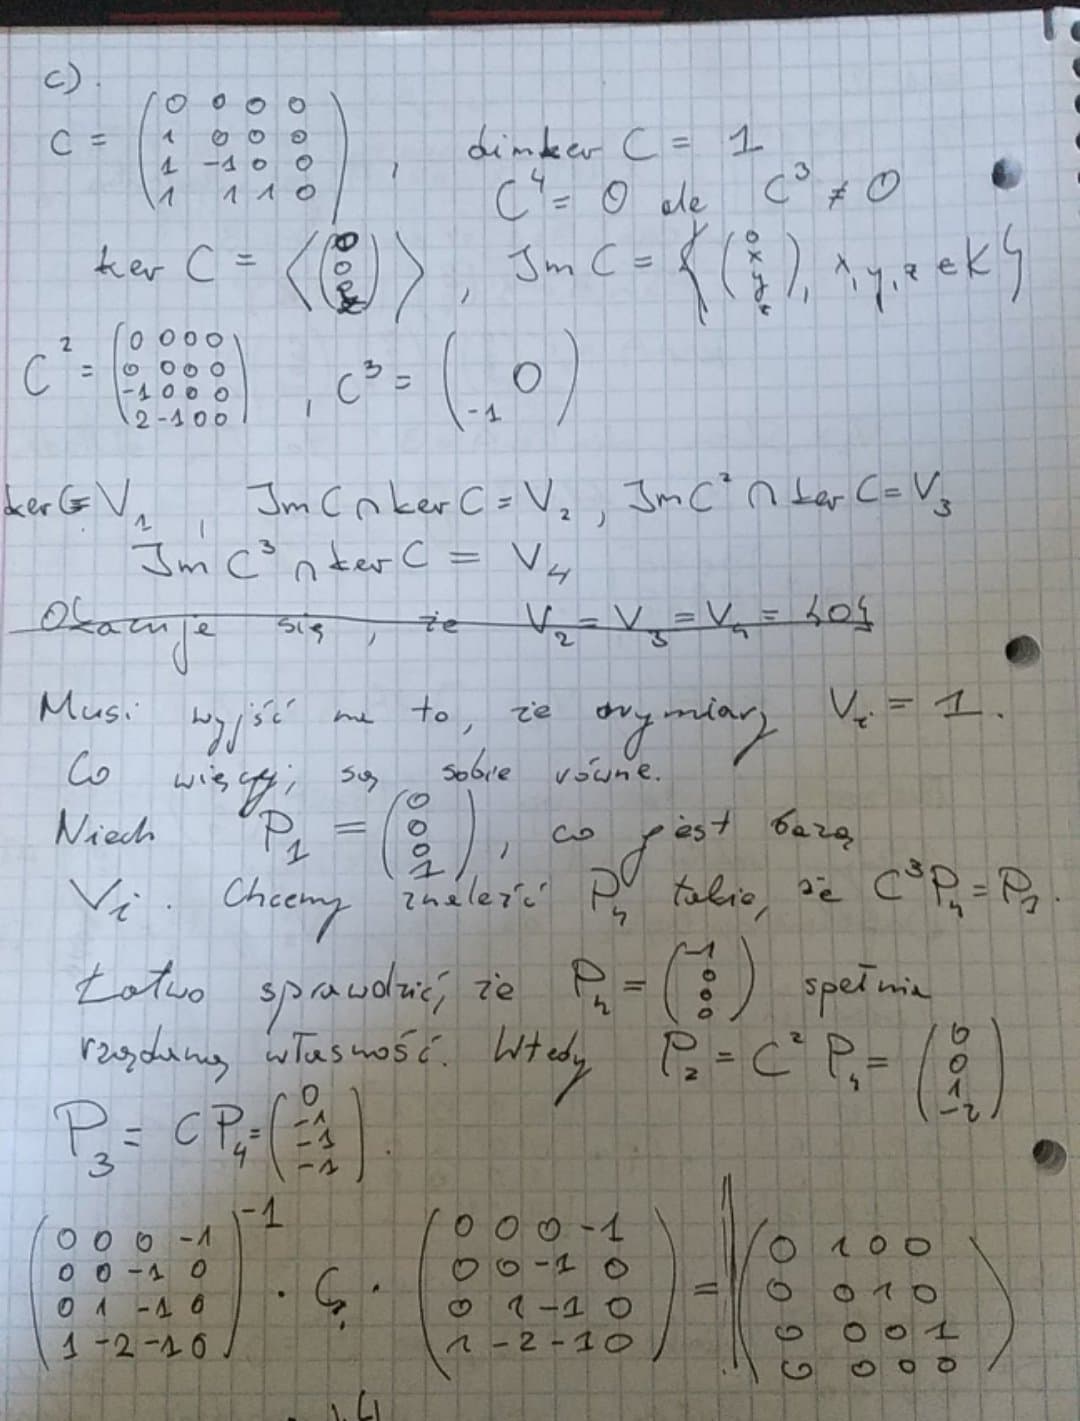 c).
C = \begin{pmatrix} 0 & 0 & 0 & 0 \\ 1 & 0 & 0 & 0 \\ 1 & -1 & 0 & 0 \\ 1 & 1 & 1 & 0 \end{pmatrix}, dim ker C = 1
C^4 = 0 ale C^3 ≠ 0
ker C = ⟨ ⟩, Im C = { \begin{pmatrix} 0 \\ x \\ y \\ z \end{pmatrix}, x, y, z ∈ K }
C^2 = \begin{pmatrix} 0 & 0 & 0 & 0 \\ 0 & 0 & 0 & 0 \\ -1 & 0 & 0 & 0 \\ 2 & -1 & 0 & 0 \end{pmatrix}, C^3 = \begin{pmatrix} & 0 \\ -1 & \end{pmatrix}
ker C = V_1, Im C ∩ ker C = V_2, Im C^2 ∩ ker C = V_3
Im C^3 ∩ ker C = V_4
Okazuje się, że V_2 = V_3 = V_4 = {0}
Musi wyjść na to, że wymiary V_i = 1.
Co więcej, są sobie równe.
Niech P_1 = \begin{pmatrix} 0 \\ 0 \\ 0 \\ 1 \end{pmatrix}, co jest bazą
V_i. Chcemy znaleźć P_4 takie, że C^3 P_4 = P_1.
Łatwo sprawdzić, że P_4 = \begin{pmatrix} -1 \\ 0 \\ 0 \\ 0 \end{pmatrix} spełnia
rządaną własność. Wtedy P_2 = C^2 P_4 = \begin{pmatrix} 0 \\ 0 \\ 1 \\ -2 \end{pmatrix}
P_3 = C P_4 = \begin{pmatrix} 0 \\ -1 \\ -1 \\ -1 \end{pmatrix}.
\begin{pmatrix} 0 & 0 & 0 & -1 \\ 0 & 0 & -1 & 0 \\ 0 & 1 & -1 & 0 \\ 1 & -2 & -1 & 0 \end{pmatrix}^{-1} · C · \begin{pmatrix} 0 & 0 & 0 & -1 \\ 0 & 0 & -1 & 0 \\ 0 & 1 & -1 & 0 \\ 1 & -2 & -1 & 0 \end{pmatrix} = \begin{pmatrix} 0 & 1 & 0 & 0 \\ 0 & 0 & 1 & 0 \\ 0 & 0 & 0 & 1 \\ 0 & 0 & 0 & 0 \end{pmatrix}